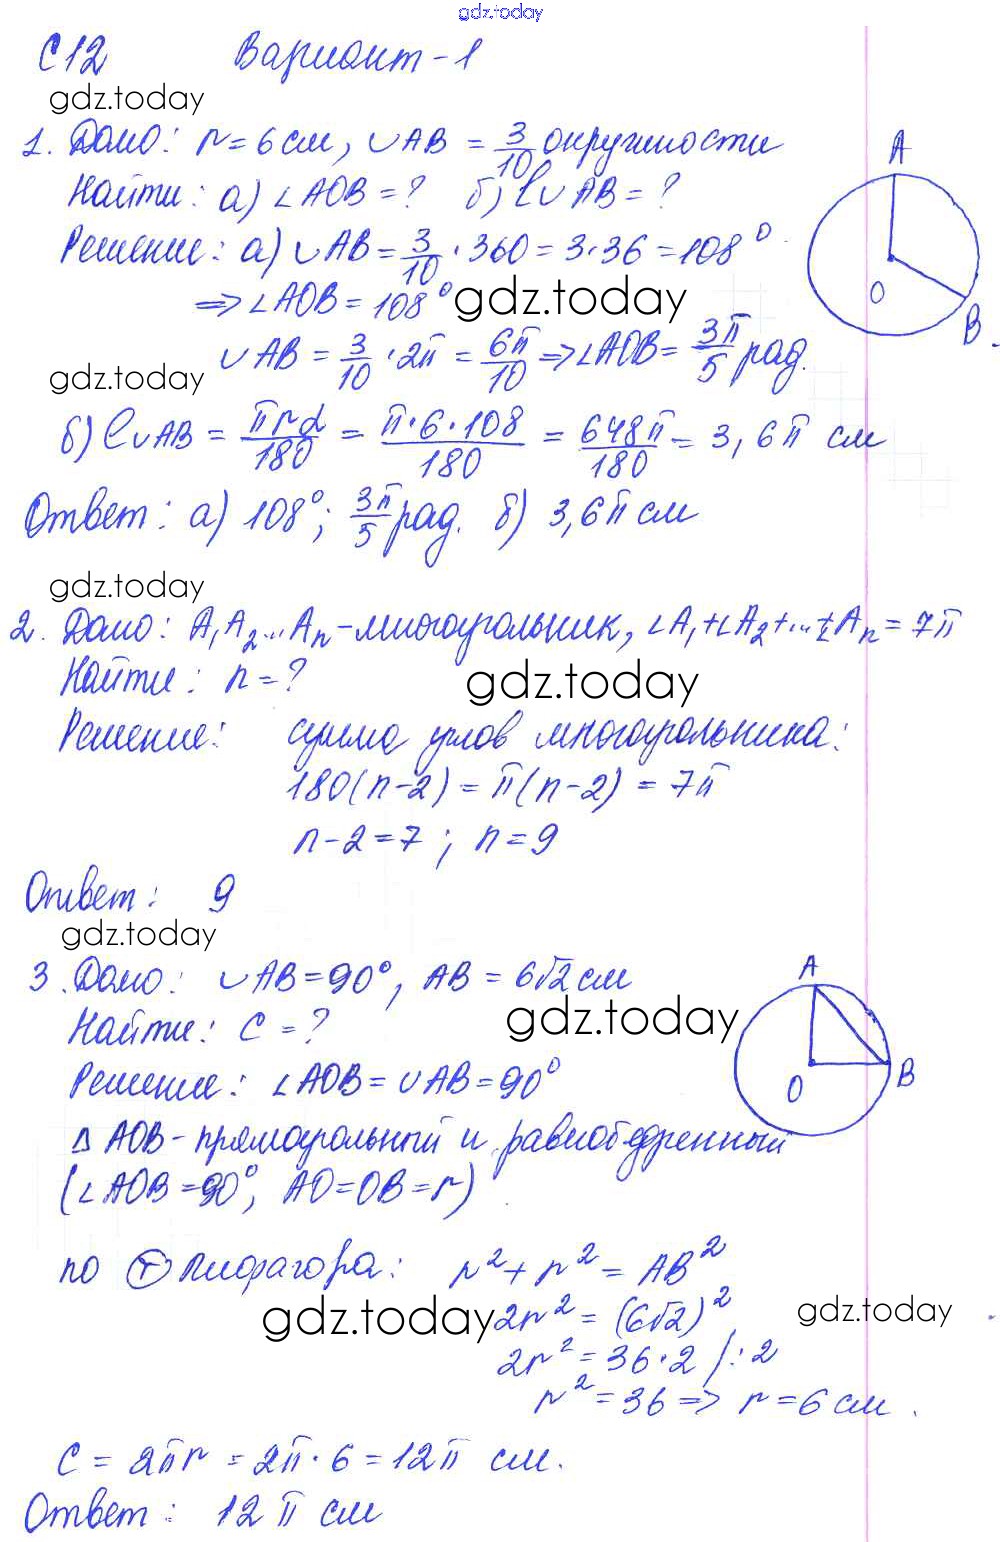 gdz.today
С12 Вариант-1
gdz.today
1. Дано: r=6см, ∪AB = 3/10 окружности
Найти: а) ∠AOB = ? б) l∪AB = ?
Решение: а) ∪AB = 3/10 · 360 = 3·36 = 108°
⇒ ∠AOB = 108°
gdz.today
∪AB = 3/10 · 2π = 6π/10 ⇒ ∠AOB = 3π/5 рад.
gdz.today
б) l∪AB = πrα/180 = π·6·108/180 = 648π/180 = 3,6π см
Ответ: а) 108°; 3π/5 рад. б) 3,6π см
A
O
B
gdz.today
2. Дано: A₁A₂...Aₙ-многоугольник, ∠A₁+∠A₂+...+∠Aₙ = 7π
Найти: n = ?
gdz.today
Решение: сумма углов многоугольника:
180(n-2) = π(n-2) = 7π
n-2 = 7; n = 9
Ответ: 9
gdz.today
3. Дано: ∪AB = 90°, AB = 6√2 см
Найти: C = ?
gdz.today
Решение: ∠AOB = ∪AB = 90°
△AOB-прямоугольный и равнобедренный
(∠AOB = 90°, AO=OB=r)
A
O
B
по Т Пифагора: r²+r² = AB²
gdz.today
2r² = (6√2)²
gdz.today
2r² = 36·2 /:2
r² = 36 ⇒ r = 6 см.
C = 2πr = 2π·6 = 12π см.
Ответ: 12π см